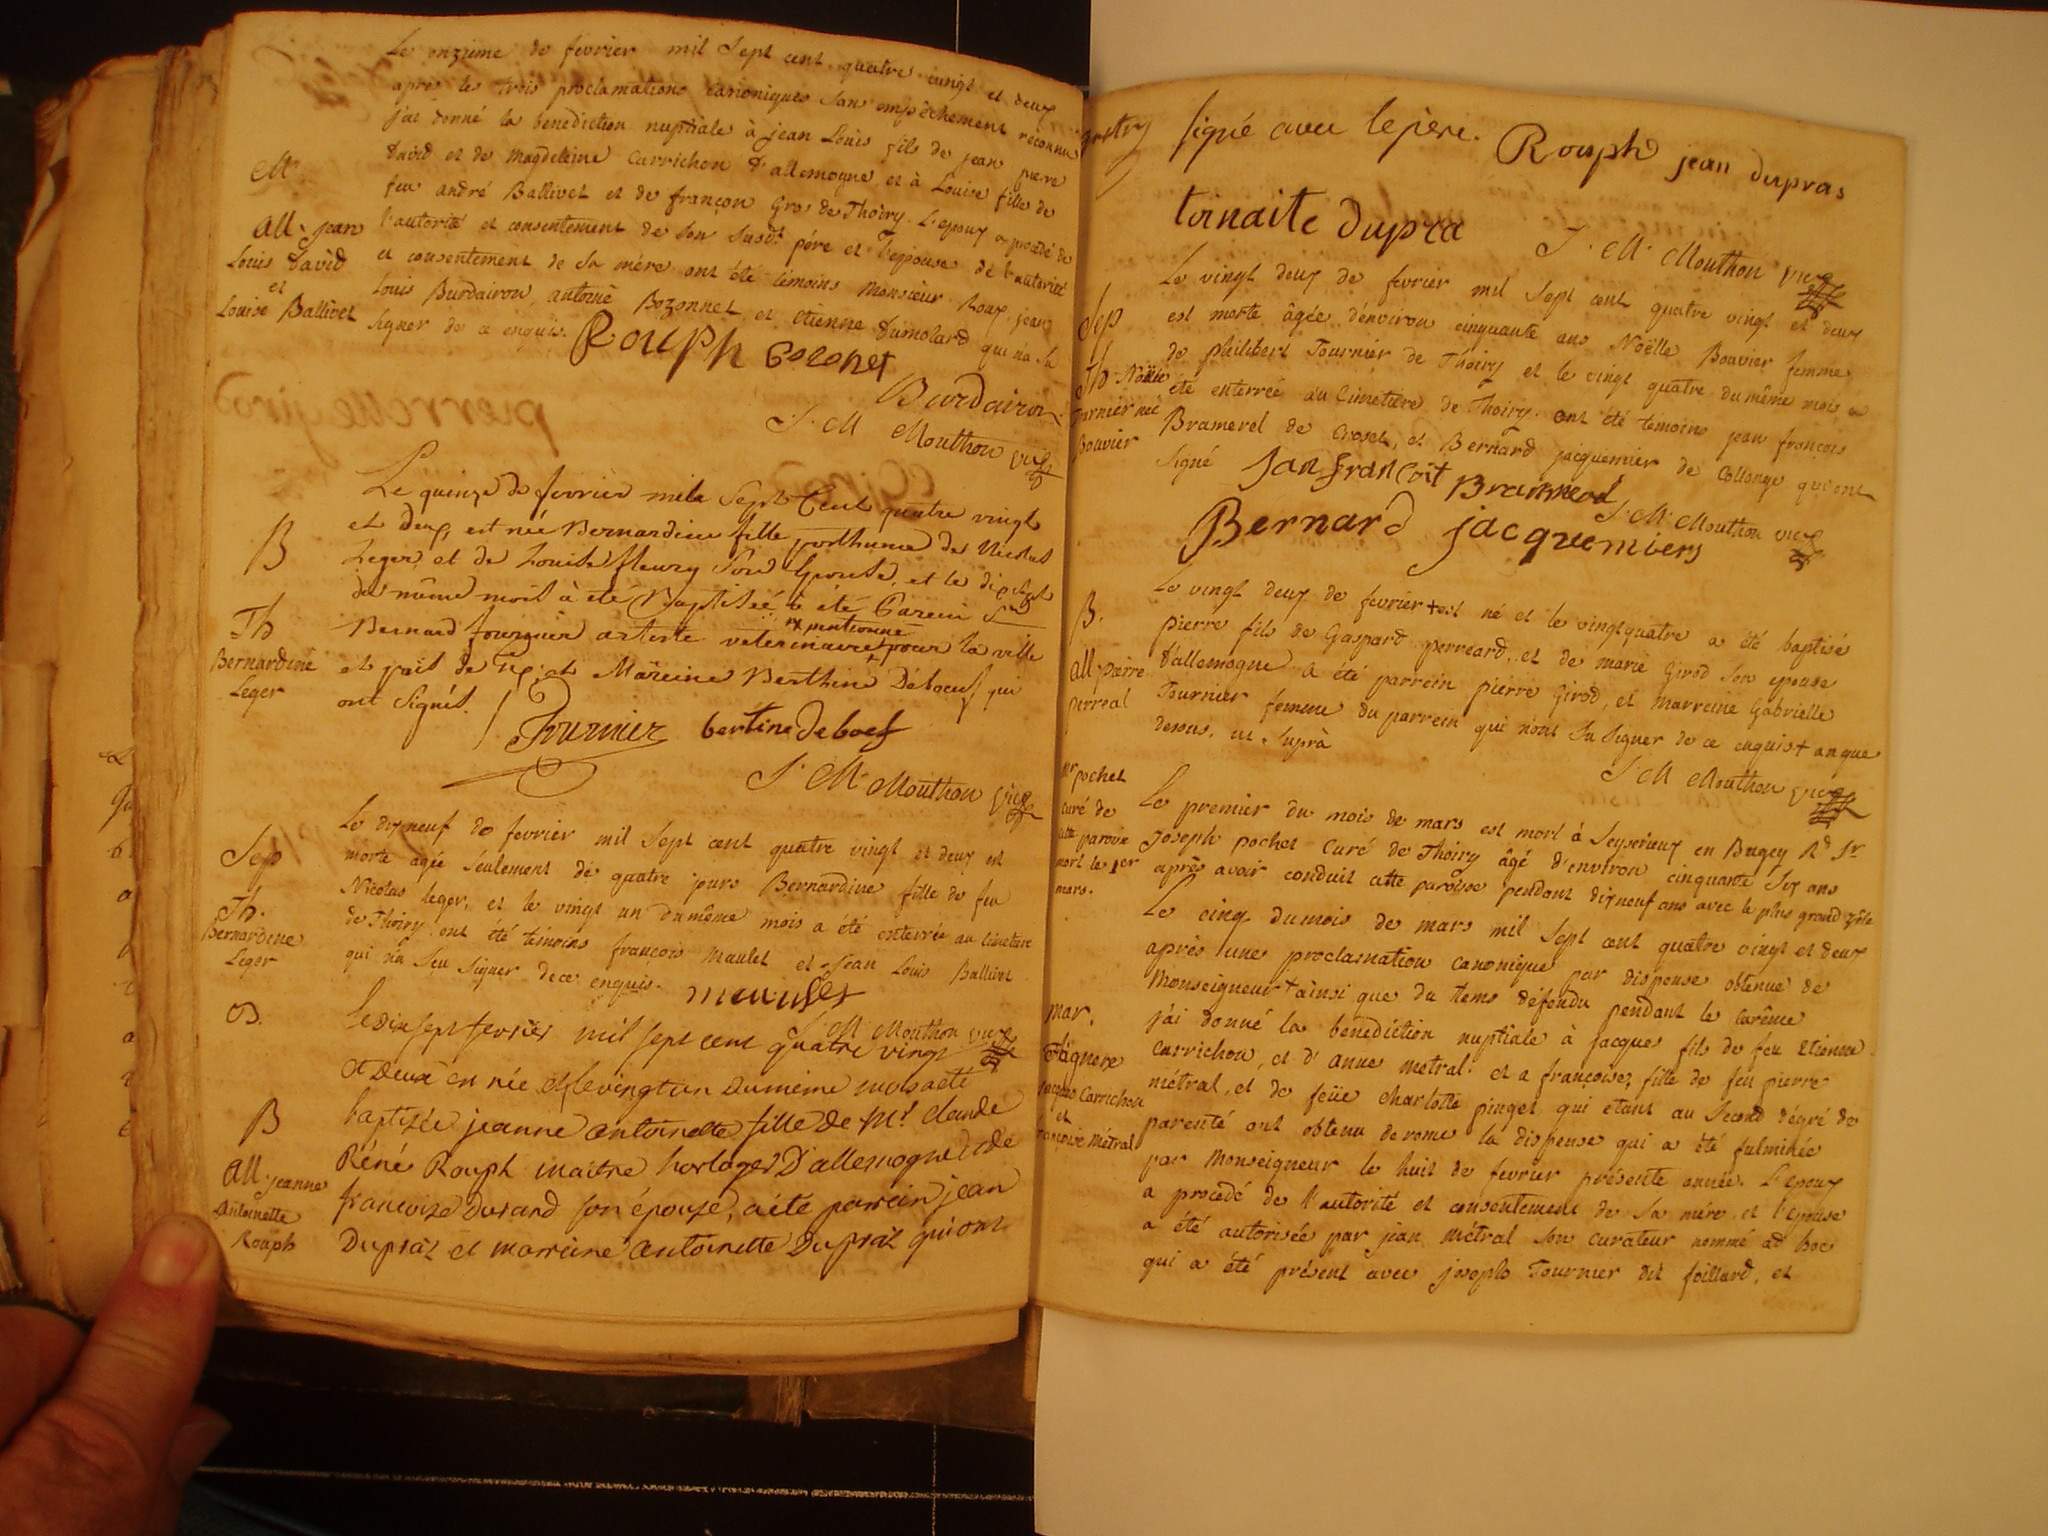 Le onzieme de fevrier mil sept cent quatre vingt et deux
après les trois proclamations canoniques sans empêchement reconnu
j'ai donné la benediction nuptiale à jean Louis fils de jean pierre
David et de Magdeleine Carrichon d'allemogne, et à Louise fille de
feu andré Ballivet et de françon Gros de Thoiry. L'epoux a procedé de
l'autorité et consentement de son susdt pére et l'epouse de l'autorité
et consentement de sa mère ont été témoins Monsieur Roup, jean
Louis Burdairon, antoine Bozonnet, et etienne Dumolard qui n'a su
signer de ce enquis. Rouph bozonet
Burdairon
J. M Mouthon vice
Mr
All. jean
Louis David
et
Louise Ballivet
Le quinze de fevrier mile sept Cent quatre vingt
et deux, est née Bernardine fille posthume de Nicolas
Leger, et de Louise fleury son Epouse, et le dix sept
du même mois à eté Baptisée, à été Parein Sr
Bernard fournier artiste veterinaire + pour la ville
+ pentionné
et païs de Gex, et Mareine Berthine Deboeuf, qui
ont Signés.
Fournier bertine de boef
J. M. Mouthon vice
B
Th
Bernardine
Leger
Le dix neuf de fevrier mil sept cent quatre vingt et deux est
morte agée seulement de quatre jours Bernardine fille de feu
Nicolas leger, et le vingt un du même mois a été enterrée au cimetiere
de Thoiry. ont été témoins françois Maulet et Jean Louis Ballivet
qui n'a seu signer de ce enquis. maulet
J. M Mouthon vice
Sep
Th.
Bernardine
Leger
B.
le dix sept fevrier mil sept cent quatre vingt
et Deux en née et le vingt un du meme mois a eté
baptizée jeanne antoinette fille de Mr. claude
Réné Rouph maitre horloger D'allemogne et de
françoize Durand son épouze, a eté parrein jean
Dupraz et marreine antoinette Dupraz qui ont
B
All. jeanne
Antoinette
Rouph
signé avec le père. Rouph jean dupras
toinaite dupra
J. M. Mouthon vice
Le vingt deux de fevrier mil sept cent quatre vingt et deux
est morte âgée d'environ cinquante ans Noëlle Bouvier femme
de philibert Tournier de Thoiry et le vingt quatre du même mois a
été enterrée au Cimetière de Thoiry. ont été témoins jean françois
Bramerel de Crozet, et Bernard jacquemier de Collonge qui ont
signé Jan francoit Brammerel
J. M. Mouthon vice
Bernard jacquemiers
Sep
Th. Noëlle
Turnier née
Bouvier
Le vingt deux de fevrier + est né et le vingt quatre a été baptisé
pierre fils de Gaspard perreard, et de marie Girod son epouse
d'allemogne a été parrein pierre Girod, et marreine Gabrielle
Tournier femme du parrein qui n'ont su signer de ce enquis + an que
dessus. ut suprà
J. M Mouthon vice
B.
All. pierre
perreal
Le premier du mois de mars est mort à Seyserieux en Bugey Rd Sr
Joseph pochet Curé de Thoiry âgé d'environ cinquante six ans
après avoir conduit cette paroisse pendant dix neuf ans avec le plus grand zèle
Mr pochet
curé de
cette paroisse
mort le 1er
mars.
Le cinq du mois de mars mil sept cent quatre vingt et deux
après une proclamation canonique par dispense obtenue de
Monseigneur + ainsi que du tems défendu pendant le carême
j'ai donné la benediction nuptiale à jacques fils de feu Etienne
Carrichon, et d'anne metral. et a françoise, fille de feu pierre
métral, et de feüe charlotte pinget qui etant au second dégré de
parenté ont obtenu de rome la dispense qui a été fulminée
par Monseigneur le huit de fevrier présente année. L'epoux
a procédé de l'autorité et consentement de sa mére, et l'epouse
a été autorisée par jean métral son curateur nommé ad hoc
qui a été présent avec joseph Tournier dit foillard, et
mar.
jacques Carrichon
et
françoise Métral